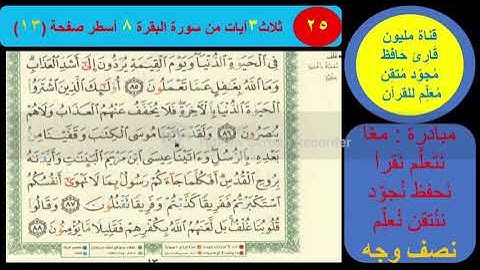 ٢٥
ثلاث٣آيات من سورة البقرة ٨ أسطر صفحة (١٣)
قناة مليون
قارئ حافظ
مُجوّد مُتقن
مُعلّم للقرآن
مبادرة : معًا
نَتعلّم نَقرأ
نَحفظ نُجوّد
نُتقن نُعلّم
نصف وجه
فِى ٱلْحَيَوٰةِ ٱلدُّنْيَا وَيَوْمَ ٱلْقِيَٰمَةِ يُرَدُّونَ إِلَىٰٓ أَشَدِّ ٱلْعَذَابِ
وَمَا ٱللَّهُ بِغَٰفِلٍ عَمَّا تَعْمَلُونَ ٨٥ أُو۟لَٰٓئِكَ ٱلَّذِينَ ٱشْتَرَوُا۟
ٱلْحَيَوٰةَ ٱلدُّنْيَا بِٱلْءَاخِرَةِ فَلَا يُخَفَّفُ عَنْهُمُ ٱلْعَذَابُ وَلَا هُمْ
يُنصَرُونَ ٨٦ وَلَقَدْ ءَاتَيْنَا مُوسَى ٱلْكِتَٰبَ وَقَفَّيْنَا مِنۢ
بَعْدِهِۦ بِٱلرُّسُلِ وَءَاتَيْنَا عِيسَى ٱبْنَ مَرْيَمَ ٱلْبَيِّنَٰتِ وَأَيَّدْنَٰهُ
بِرُوحِ ٱلْقُدُسِ أَفَكُلَّمَا جَآءَكُمْ رَسُولٌۢ بِمَا لَا تَهْوَىٰٓ أَنفُسُكُمُ
ٱسْتَكْبَرْتُمْ فَفَرِيقًا كَذَّبْتُمْ وَفَرِيقًا تَقْتُلُونَ ٨٧ وَقَالُوا۟
قُلُوبُنَا غُلْفٌۢ بَل لَّعَنَهُمُ ٱللَّهُ بِكُفْرِهِمْ فَقَلِيلًا مَّا يُؤْمِنُونَ ٨٨